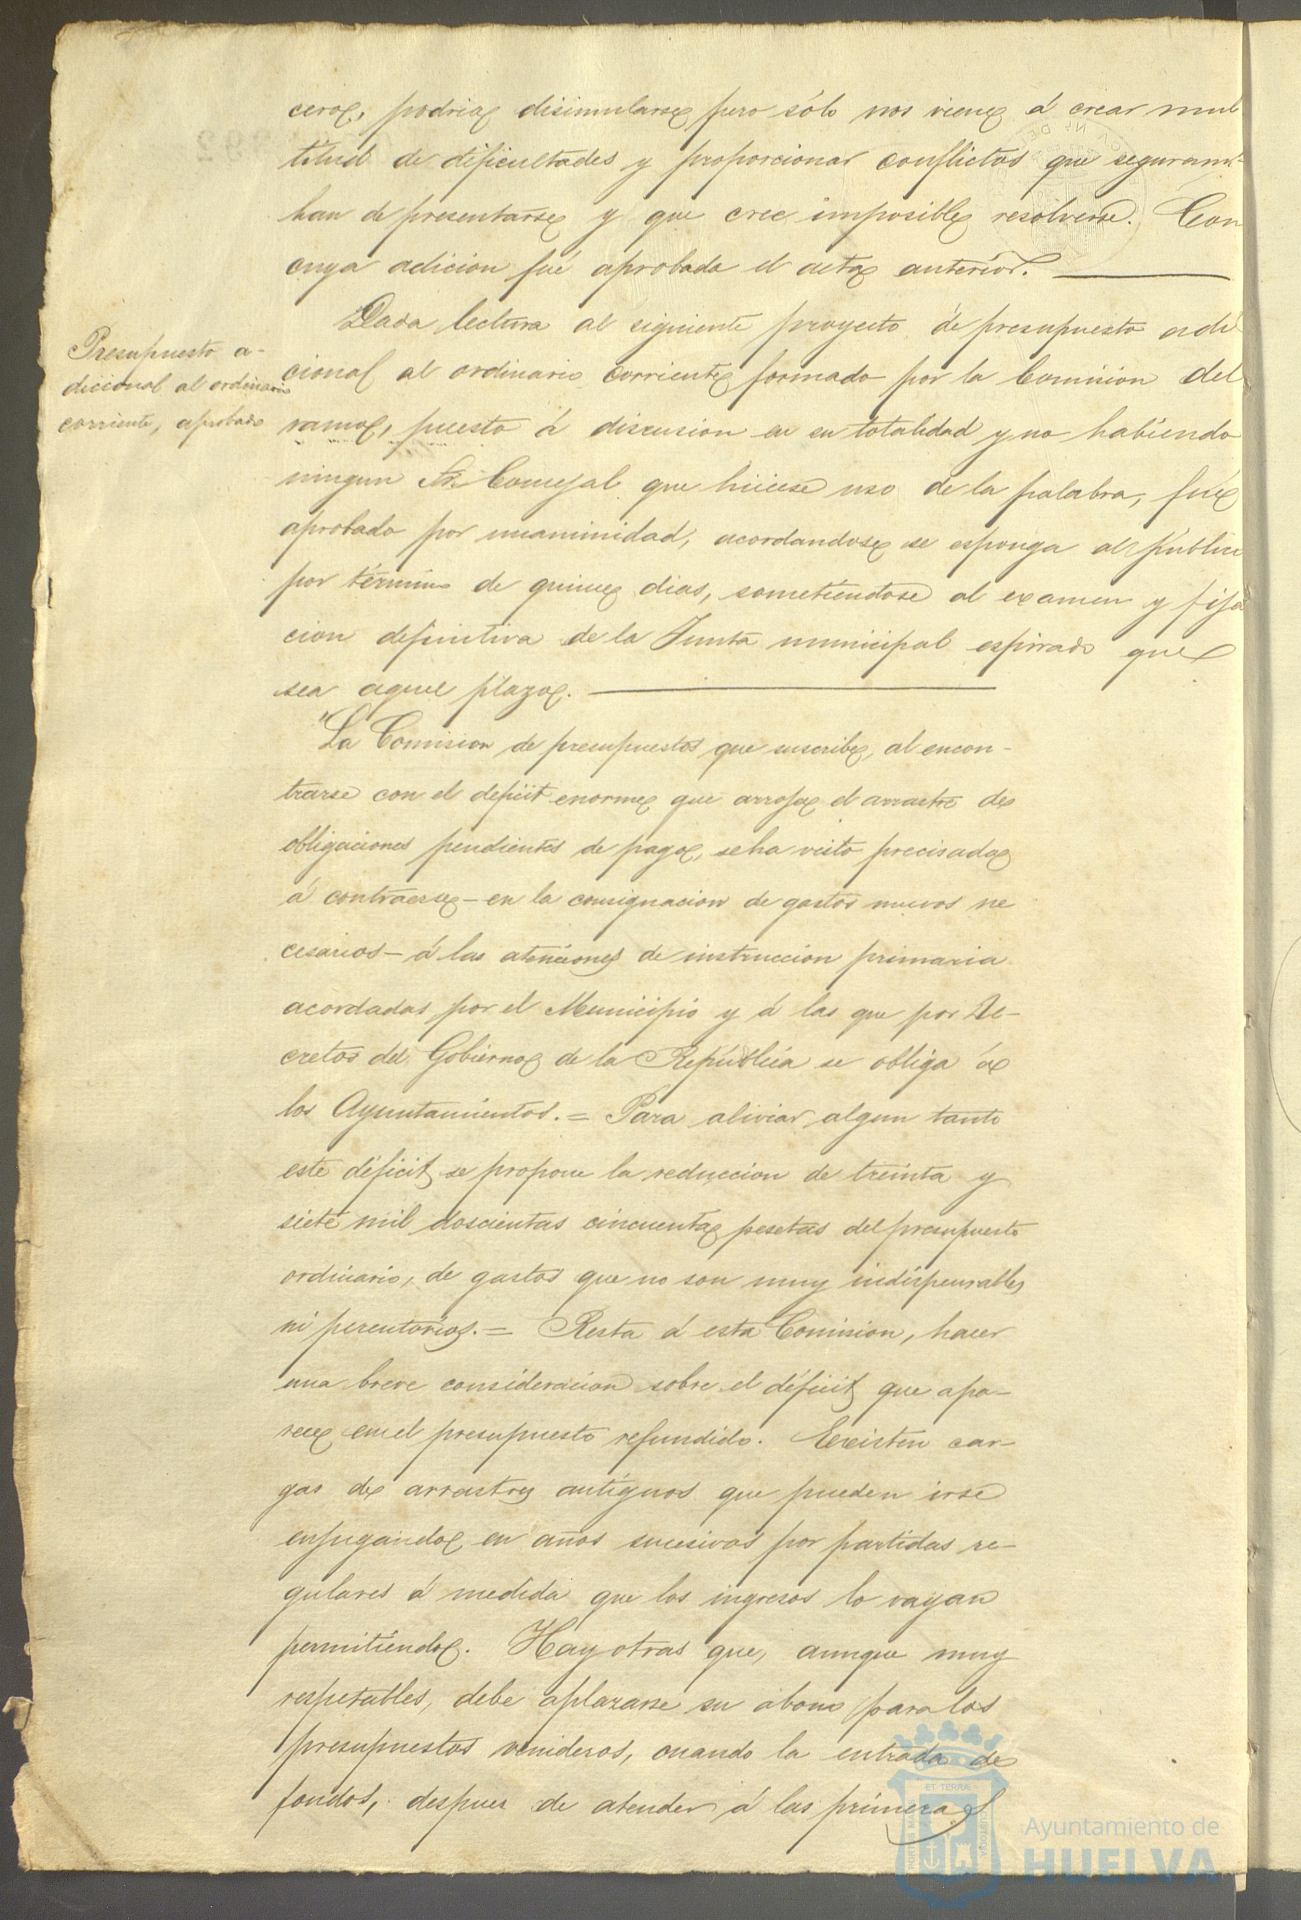 cero, podria disimularse, pero sólo nos viene á crear mul
titud de dificultades y proporcionar conflictos que seguram.te
han de presentarse y que cree imposible resolverse. Con
cuya adicion fué aprobada el acta anterior.
Presupuesto a-
dicional al ordinario
corriente, aprobado
Dada lectura al siguiente proyecto de presupuesto adi
cional al ordinario corriente formado por la Comision del
ramo, puesto á discusion en su totalidad y no habiendo
ningun Sr. Concejal que hiciese uso de la palabra, fué
aprobado por unanimidad, acordandose se esponga al públic
por término de quince dias, sometiéndose al examen y fija
cion definitiva de la Junta municipal espirado que
sea aquel plazo.
"La Comision de presupuestos que suscribe, al encon-
trarse con el deficit enorme que arroja el arrastre de
obligaciones pendientes de pago, se ha visto precisada
á contraerse - en la consignacion de gastos nuevos ne
cesarios - á las atenciones de instruccion primaria
acordadas por el Municipio y á las que por De-
cretos del Gobierno de la República se obliga á
los Ayuntamientos. = Para aliviar algun tanto
este déficit se propone la reduccion de treinta y
siete mil doscientas cincuenta pesetas del presupuesto
ordinario, de gastos que no son muy indispensables
ni perentorios. = Resta á esta Comision, hacer
una breve consideracion sobre el déficit que apa-
rece en el presupuesto refundido. Existen car-
gas de arrastres antiguos que pueden irse
enjugando en años sucesivos por partidas re-
gulares á medida que los ingresos lo vayan
permitiendo. Hay otras que, aunque muy
respetables, debe aplazarse su abono para los
presupuestos venideros, cuando la entrada de
fondos, despues de atender á las primeras
Ayuntamiento de
HUELVA